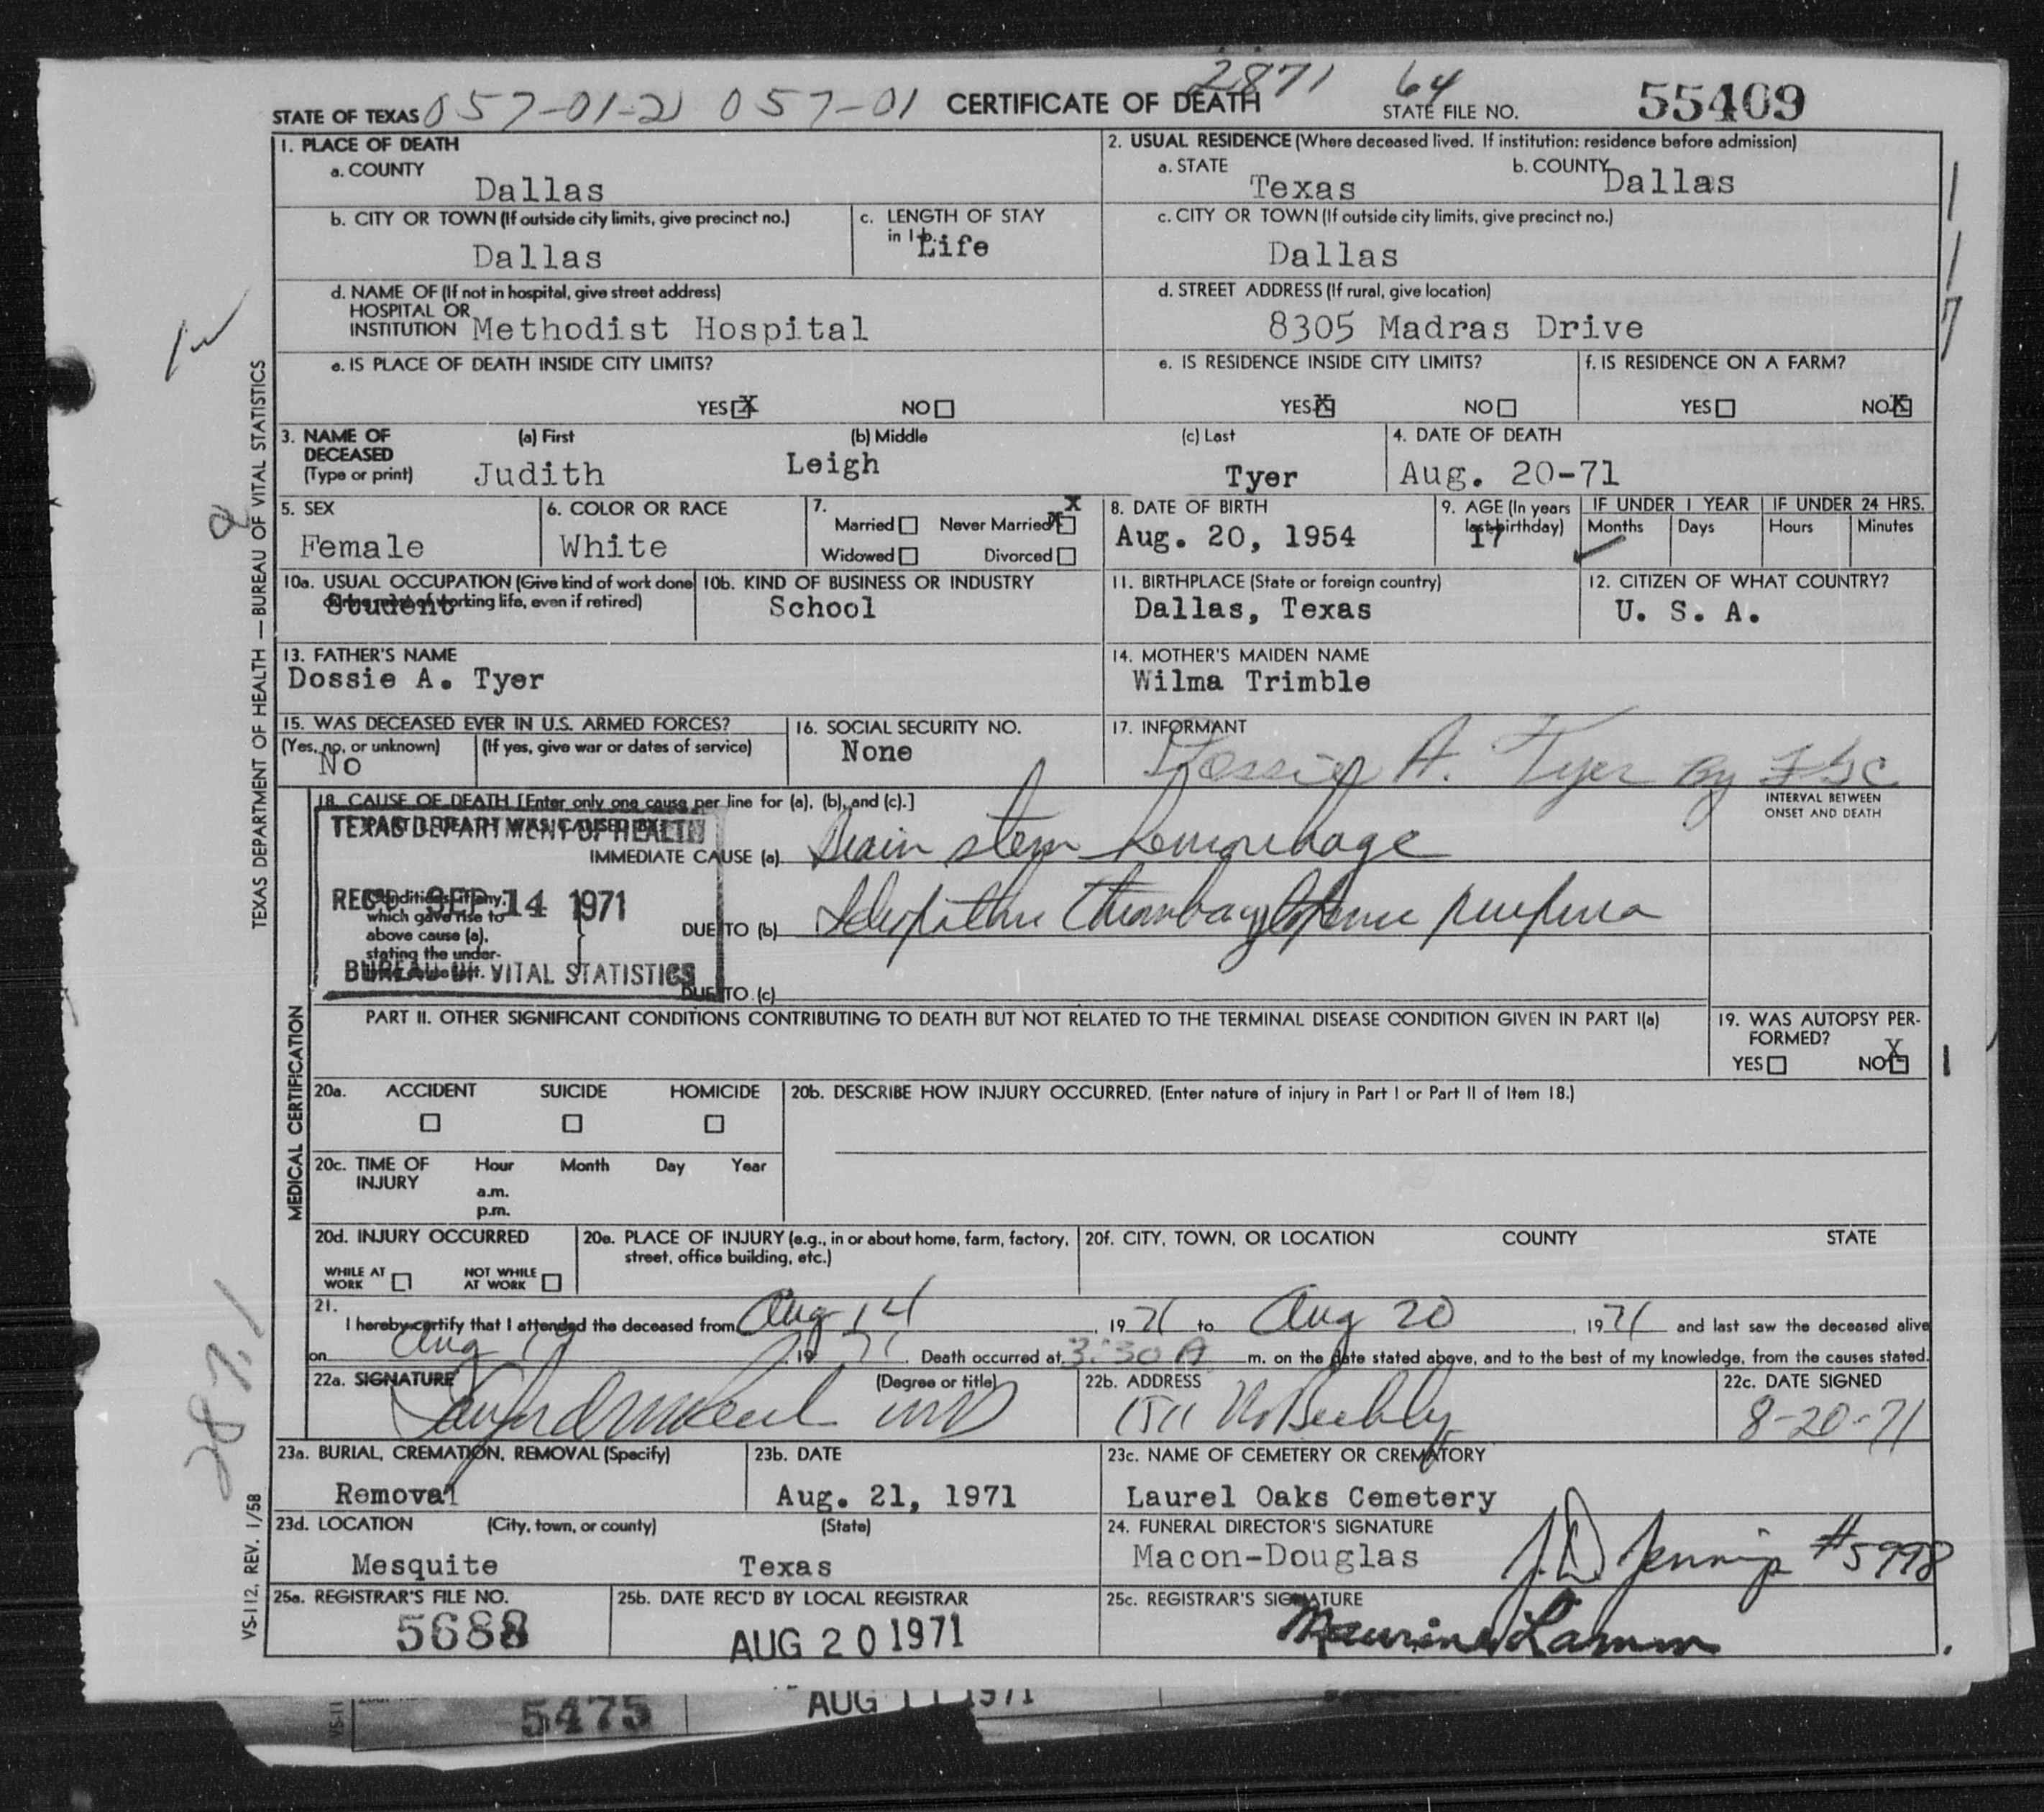 2871 64
STATE OF TEXAS 057-01-21 057-01 CERTIFICATE OF DEATH STATE FILE NO. 55409
1. PLACE OF DEATH
a. COUNTY
Dallas
2. USUAL RESIDENCE (Where deceased lived. If institution: residence before admission)
a. STATE Texas b. COUNTY Dallas
b. CITY OR TOWN (If outside city limits, give precinct no.)
Dallas
c. LENGTH OF STAY in 1b.
Life
c. CITY OR TOWN (If outside city limits, give precinct no.)
Dallas
d. NAME OF (If not in hospital, give street address)
HOSPITAL OR
INSTITUTION Methodist Hospital
d. STREET ADDRESS (If rural, give location)
8305 Madras Drive
e. IS PLACE OF DEATH INSIDE CITY LIMITS?
YES X NO
e. IS RESIDENCE INSIDE CITY LIMITS?
YES X NO
f. IS RESIDENCE ON A FARM?
YES NO X
3. NAME OF DECEASED (Type or print)
(a) First (b) Middle (c) Last
Judith Leigh Tyer
4. DATE OF DEATH
Aug. 20-71
5. SEX
Female
6. COLOR OR RACE
White
7. Married Never Married X
Widowed Divorced
8. DATE OF BIRTH
Aug. 20, 1954
9. AGE (In years last birthday)
17
IF UNDER 1 YEAR Months Days
IF UNDER 24 HRS. Hours Minutes
10a. USUAL OCCUPATION (Give kind of work done during most of working life, even if retired)
Student
10b. KIND OF BUSINESS OR INDUSTRY
School
11. BIRTHPLACE (State or foreign country)
Dallas, Texas
12. CITIZEN OF WHAT COUNTRY?
U. S. A.
13. FATHER'S NAME
Dossie A. Tyer
14. MOTHER'S MAIDEN NAME
Wilma Trimble
15. WAS DECEASED EVER IN U.S. ARMED FORCES?
(Yes, no, or unknown) (If yes, give war or dates of service)
No
16. SOCIAL SECURITY NO.
None
17. INFORMANT
Dossie A. Tyer By
18. CAUSE OF DEATH [Enter only one cause per line for (a), (b), and (c).]
INTERVAL BETWEEN ONSET AND DEATH
TEXAS DEPARTMENT OF HEALTH
IMMEDIATE CAUSE (a) Brain stem hemorrhage
REC'D SEP 14 1971
Conditions, if any, which gave rise to above cause (a), stating the under-
DUE TO (b) Idiopathic thrombocytopenic purpura
BUREAU OF VITAL STATISTICS
DUE TO (c)
PART II. OTHER SIGNIFICANT CONDITIONS CONTRIBUTING TO DEATH BUT NOT RELATED TO THE TERMINAL DISEASE CONDITION GIVEN IN PART I(a)
19. WAS AUTOPSY PER-
FORMED?
YES NO X
20a. ACCIDENT SUICIDE HOMICIDE
20b. DESCRIBE HOW INJURY OCCURRED. (Enter nature of injury in Part I or Part II of Item 18.)
20c. TIME OF INJURY Hour Month Day Year
a.m.
p.m.
20d. INJURY OCCURRED
WHILE AT WORK NOT WHILE AT WORK
20e. PLACE OF INJURY (e.g., in or about home, farm, factory, street, office building, etc.)
20f. CITY, TOWN, OR LOCATION COUNTY STATE
21.
I hereby certify that I attended the deceased from Aug 14, 1971 to Aug 20, 1971 and last saw the deceased alive
on Aug 19, 1971. Death occurred at 3:30 A m. on the date stated above, and to the best of my knowledge, from the causes stated.
22a. SIGNATURE (Degree or title)
MD
22b. ADDRESS
1511 N. Beckley
22c. DATE SIGNED
8-20-71
23a. BURIAL, CREMATION, REMOVAL (Specify)
Removal
23b. DATE
Aug. 21, 1971
23c. NAME OF CEMETERY OR CREMATORY
Laurel Oaks Cemetery
23d. LOCATION (City, town, or county) (State)
Mesquite Texas
24. FUNERAL DIRECTOR'S SIGNATURE
Macon-Douglas J.D. Jennings #5998
25a. REGISTRAR'S FILE NO.
5688
25b. DATE REC'D BY LOCAL REGISTRAR
AUG 20 1971
25c. REGISTRAR'S SIGNATURE
Maurine Lamm
TEXAS DEPARTMENT OF HEALTH — BUREAU OF VITAL STATISTICS
MEDICAL CERTIFICATION
VS-112, REV. 1/58
2871
5475
AUG 11 1971